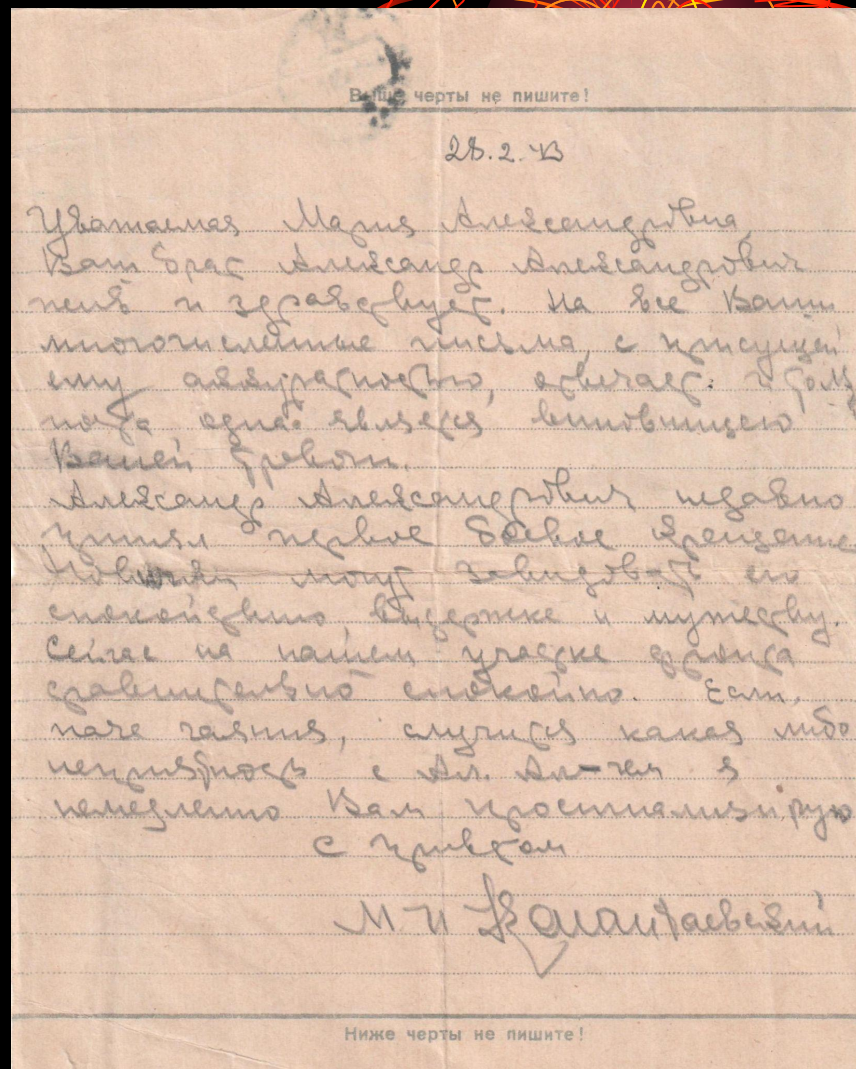 Выше черты не пишите!
28.2.43
Уважаемая Мария Александровна
Ваш брат Александр Александрович
жив и здравствует. На все Ваши
многочисленные письма, с присущей
ему аккуратностью, отвечает.
почта одна является виновницею
Вашей тревоги.
Александр Александрович недавно
принял первое боевое крещение
могут завидовать его
спокойствию, выдержке и мужеству.
Сейчас на нашем участке фронта
сравнительно спокойно. Если,
паче чаяния, случится какая либо
неприятность с Ал. Ал-чем я
немедленно Вам просигнализирую
С приветом
М. И
Ниже черты не пишите!